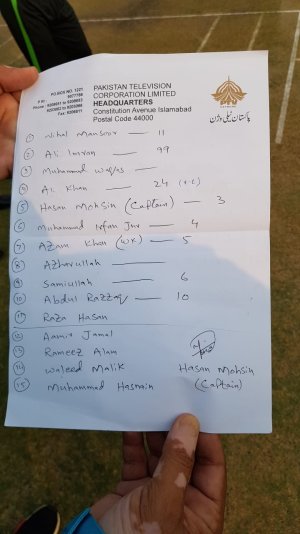 PO.BOX NO. 1221
PAKISTAN TELEVISION
CORPORATION LIMITED
HEADQUARTERS
Constitution Avenue Islamabad
Postal Code 44000
پاکستان ٹیلی وژن
1 Nihal Mansoor — 11
2 Ali Imran — 99
3 Muhammad Waqas —
4 Ali Khan — 24
5 Hasan Mohsin (Captain) — 3
6 Muhammad Irfan Jnr — 4
7 Azam Khan (WK) — 5
8 Azharullah —
9 Samiullah — 6
10 Abdul Razzaq — 10
Raza Hasan
12 Aamir Jamal
13 Rameez Alam
14 Waleed Malik
Hasan Mohsin
15 Muhammad Hasnain
(Captain)